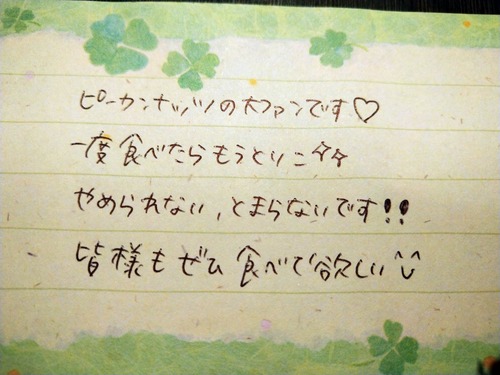 ピーカンナッツの大ファンです♡
一度食べたらもうとりこ☆☆
やめられない,とまらないです!!
皆様もぜひ食べて欲しい^^